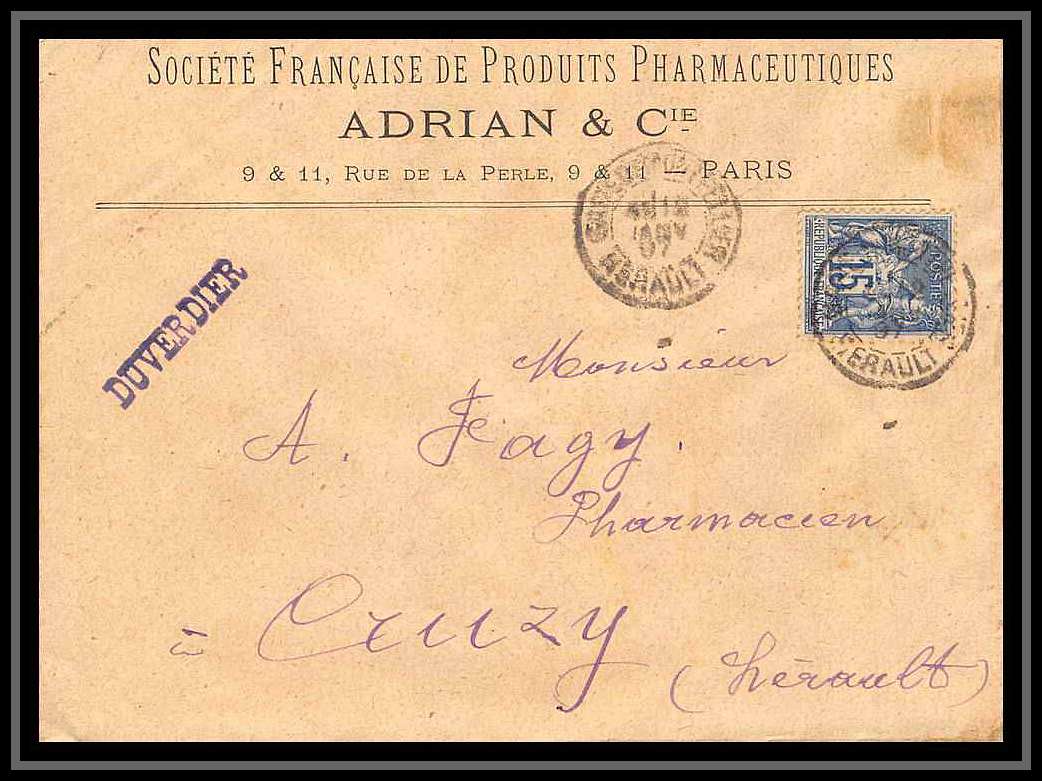 SOCIÉTÉ FRANÇAISE DE PRODUITS PHARMACEUTIQUES
ADRIAN & CIE
9 & 11, RUE DE LA PERLE, 9 & 11 — PARIS
HÉRAULT
POSTES
15
RÉPUBLIQUE FRANÇAISE
HÉRAULT
DUVERDIER
Monsieur
A. Fagy.
Pharmacien
à Cruzy
(hérault)